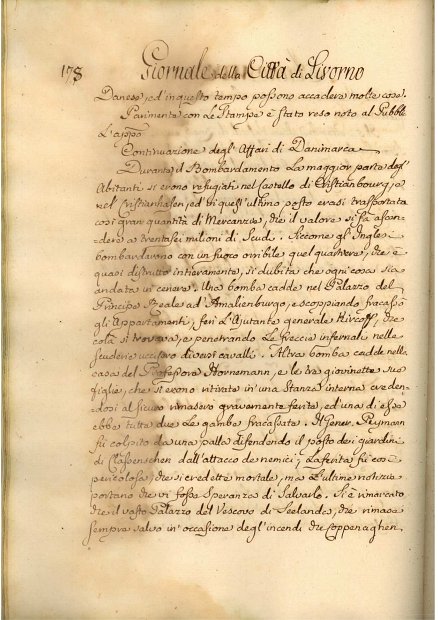 178 Giornale della Città di Livorno
Danese, ed in questo tempo possono accadere molte cose.
Parimente con Le Stampe è stato reso noto al Pubbl:
L'appo
Continuazione degl'Affari di Danimarca
Durante il Bombardamento La maggior parte degl'
Abitanti si erono refugiati nel Castello di Cristianbourg, e
nel Cristianhafen, ed in quest'ultimo posto erasi trasportata
così gran quantità di Mercanzie, che il valore si fà ascen-
dere a trentasei milioni di Scudi. Siccome gl'Inglesi
bombardavono con un fuoco orribile quel quartiere, che è
quasi distrutto intieramente, si dubita che ogni cosa sia
andata in cenere. Una bomba cadde nel Palazzo del
Principe Reale ad Amalienburgo, e scoppiando fracassò
gl'Appartamenti, ferì L'Ajutante generale Kircoff, che
colà si trovava, e penetrando Le freccie infernali nelle
scuderie uccisero diversi cavalli. Altra bomba cadde nella
casa del Professore Hornemann, e le tre giovinette sue
figlie, che si erono ritirate in una Stanza interna creden-
dosi al sicuro rimasero gravemente ferite, ed una di esse
ebbe tutte due Le gambe fracassate. Il Gener. Peymann
fù colpito da una palla difendendo il posto dei giardini
di Classenschen dall'attacco de nemici; La ferita fù così
pericolosa, che si credette mortale, ma L'ultime notizie
portano che vi fosse Speranza di Salvarlo. Si è rimarcato
che il vasto Palazzo del Vescovo di Seelande, che rimase
sempre salvo in occasione degl'incendi di Coppenaghen